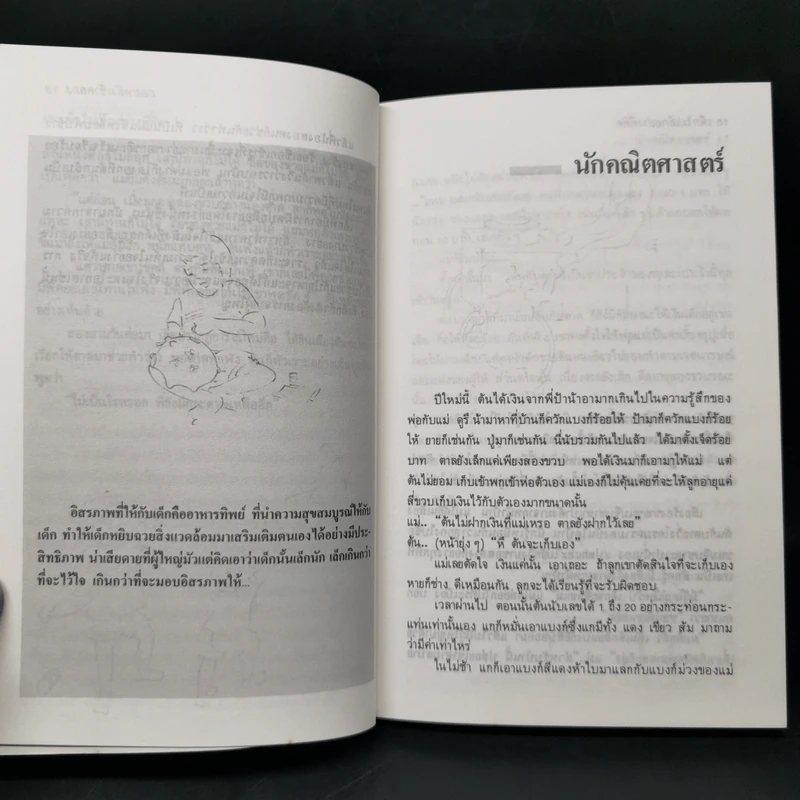 อิสรภาพที่ให้กับเด็กคืออาหารทิพย์ ที่นำความสุขสมบูรณ์ให้กับ
เด็ก ทำให้เด็กหยิบฉวยสิ่งแวดล้อมมาเสริมเติมตนเองได้อย่างมีประ-
สิทธิภาพ น่าเสียดายที่ผู้ใหญ่มัวแต่คิดเอาว่าเด็กนั้นเล็กนัก เล็กเกินกว่า
ที่จะไว้ใจ เกินกว่าที่จะมอบอิสรภาพให้...
นักคณิตศาสตร์
ปีใหม่นี้ ต้นได้เงินจากพี่ป้าน้าอามากเกินไปในความรู้สึกของ
พ่อกับแม่ ดูรึ น้ามาหาที่บ้านก็ควักแบงก์ร้อยให้ ป้ามาก็ควักแบงก์ร้อย
ให้ ยายก็เช่นกัน ปู่มาก็เช่นกัน นี่นับรวมกันไปแล้ว ได้มาตั้งเจ็ดร้อย
บาท ตาลยังเล็กแค่เพียงสองขวบ พอได้เงินมาก็เอามาให้แม่ แต่
ต้นไม่ยอม เก็บเข้าพกเข้าห่อตัวเอง แม่เองก็ไม่คุ้นเคยที่จะให้ลูกอายุแค่
สี่ขวบเก็บเงินไว้กับตัวเองมากขนาดนั้น
แม่.. “ต้นไม่ฝากเงินที่แม่เหรอ ตาลยังฝากไว้เลย”
ต้น.. (หน้ายุ่ง ๆ) “หึ ต้นจะเก็บเอง”
แม่เลยตัดใจ เงินแค่นั้น เอาเถอะ ถ้าลูกเขาตัดสินใจที่จะเก็บเอง
หายก็ช่าง ดีเหมือนกัน ลูกจะได้เรียนรู้ที่จะรับผิดชอบ
เวลาผ่านไป ตอนนั้นต้นนับเลขได้ 1 ถึง 20 อย่างกระท่อนกระ-
แท่นเท่านั้นเอง แกก็หมั่นเอาแบงก์ซึ่งแกมีทั้ง แดง เขียว ส้ม มาถาม
ว่ามีค่าเท่าไหร่
ในไม่ช้า แกก็เอาแบงก์สีแดงห้าใบมาแลกกับแบงก์ม่วงของแม่